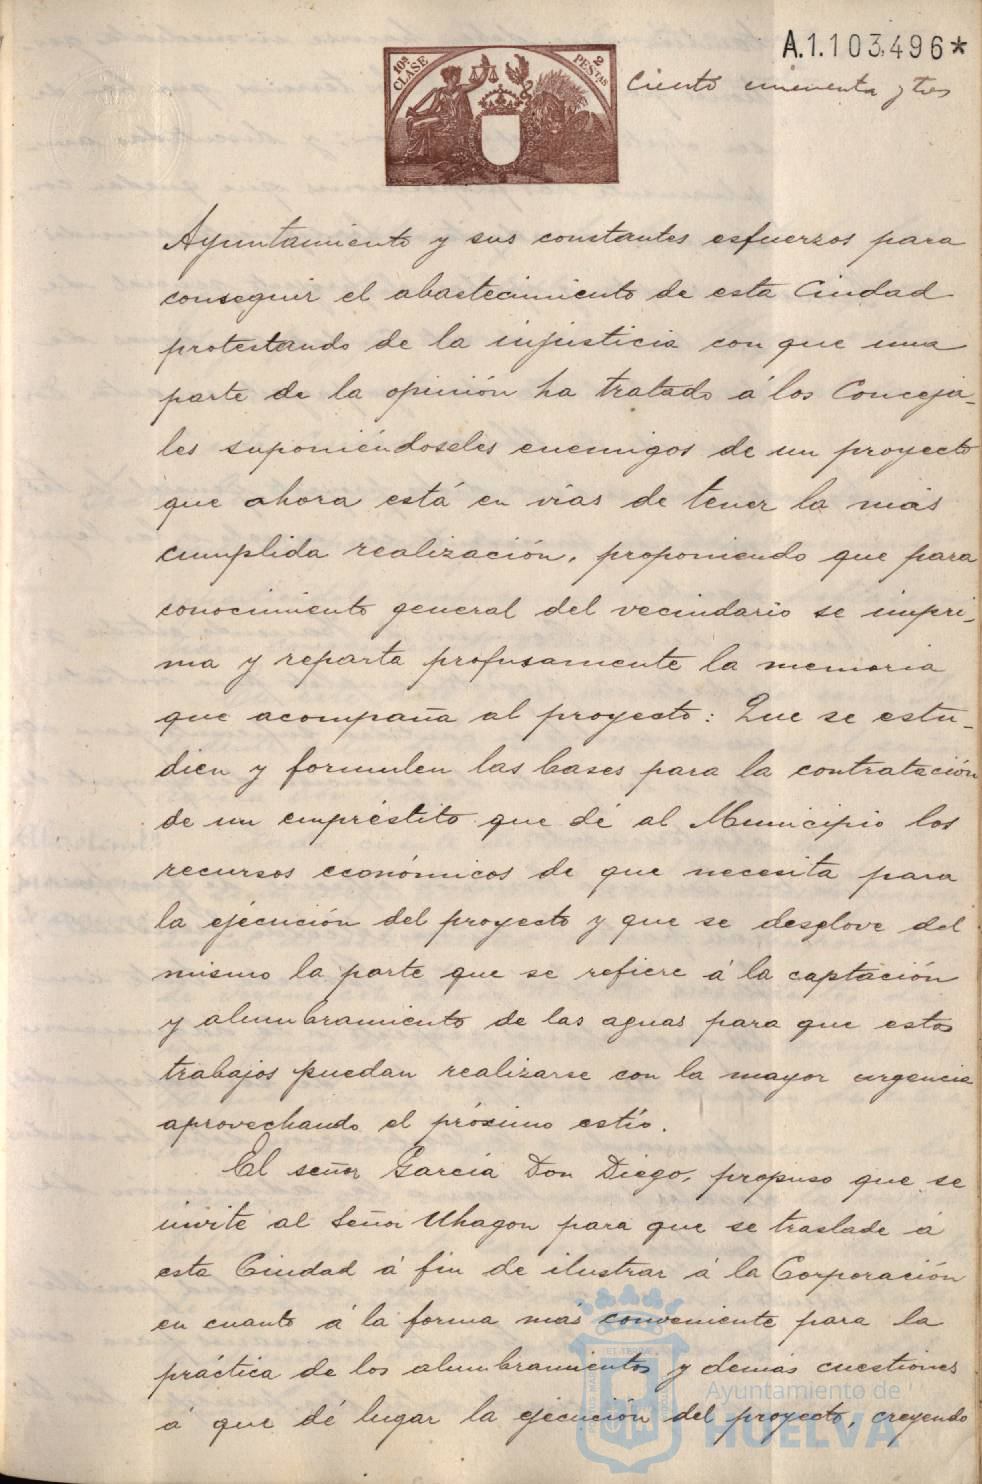 A.1.103,496*
10ª CLASE
2 PESETAS
Ciento cincuenta y tres
Ayuntamiento y sus constantes esfuerzos para
conseguir el abastecimiento de esta Ciudad
protestando de la injusticia con que una
parte de la opinión ha tratado á los Conceja-
les suponiéndoseles enemigos de un proyecto
que ahora está en vías de tener la más
cumplida realización, proponiendo que para
conocimiento general del vecindario se impri-
ma y reparta profusamente la memoria
que acompaña al proyecto: Que se estu-
dien y formulen las bases para la contratación
de un empréstito que dé al Municipio los
recursos económicos de que necesita para
la ejécución del proyecto y que se desglove del
mismo la parte que se refiere á la captación
y alumbramiento de las aguas para que estos
trabajos puedan realizarse con la mayor urgencia
aprovechando el próximo estío.
El señor García Don Diego, propuso que se
invite al Señor Uhagon para que se traslade á
esta Ciudad á fin de ilustrar á la Corporación
en cuanto á la forma más conveniente para la
práctica de los alumbramientos y demás cuestiones
á que dé lugar la ejecución del proyecto, creyendo
Ayuntamiento de
HUELVA